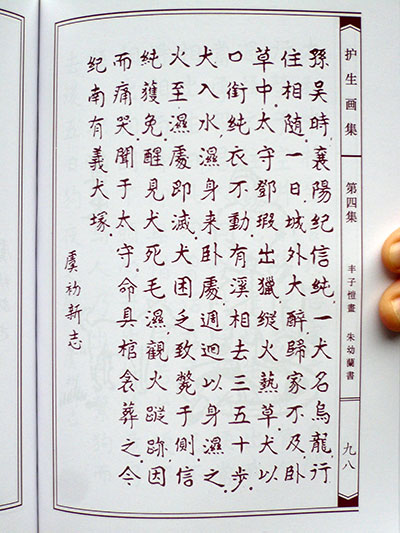 护生画集
第四集
丰子愷畫
朱幼蘭書
九八
孫吳時.襄陽紀信純.一犬名烏龍.行
住相隨.一日.城外大醉.歸家不及.卧
草中.太守鄧瑕出獵.縱火爇草.犬以
口銜純衣不動.有溪相去三五十步.
犬入水.濕身来卧處.週迴以身濕之.
火至濕處即滅.犬困乏致斃于側.信
純獲免.醒見犬死毛濕.觀火蹤跡.因
而痛哭.聞于太守.命具棺衾葬之.今
紀南有義犬塚.
虞初新志